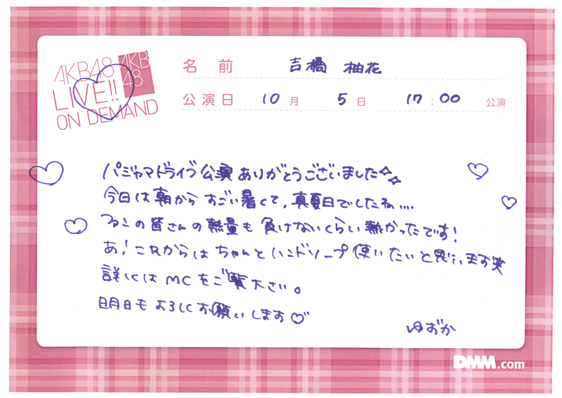 AKB48
LIVE!!
ON DEMAND
AKB
48
名前 吉橋 柚花
公演日 10月 5日 17:00 公演
パジャマドライブ公演ありがとうございました
今日は朝からすごい暑くて、真夏日でしたね....
ファンの皆さんの熱量も負けないくらい熱かったです!
あ!これからはちゃんとハンドソープ使いたいと思います笑
詳しくはMCをご覧下さい。
明日もよろしくお願いします♡
ゆずか
DMM.com